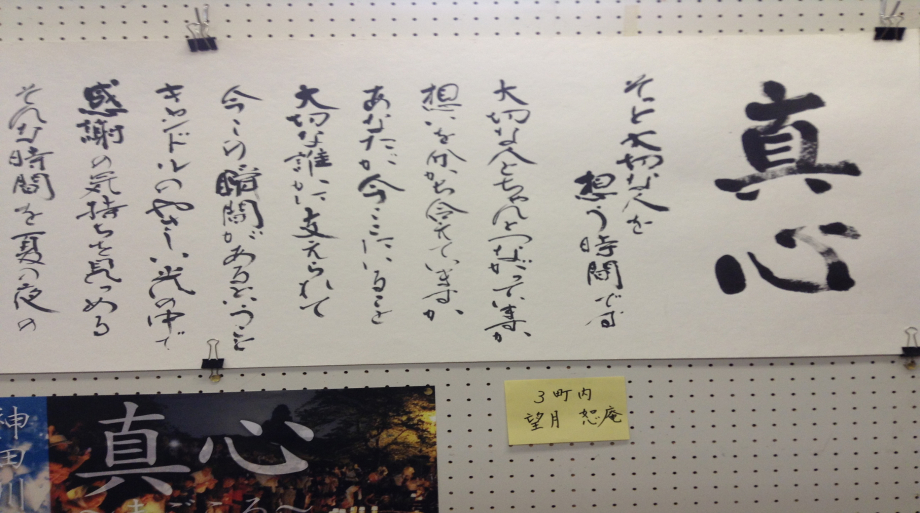 真心
そっと大切な人を
想う時間です
大切な人とちゃんとつながっていますか
想いを分かち合えていますか
あなたが今ここにいること
大切な誰かに支えられて
今この瞬間があるということ
キャンドルのやさしい光の中で
感謝の気持ちを見つめる
そんな時間を夏の夜の
3町内
望月 恕庵
神田川
真心
〜まごころ〜